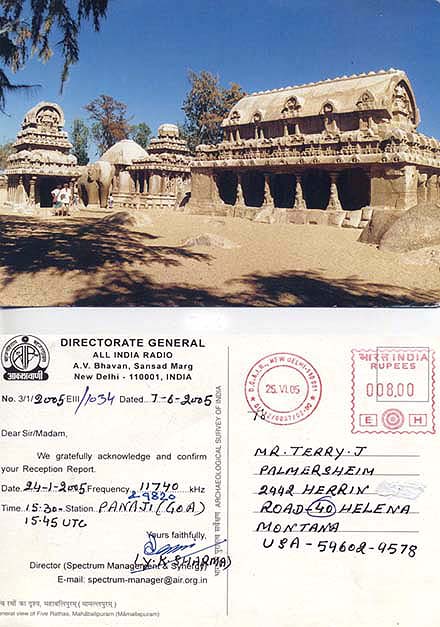 DIRECTORATE GENERAL
ALL INDIA RADIO
A.V. Bhavan, Sansad Marg
New Delhi - 110001, INDIA
आकाशवाणी
No. 3/1/2005EIII/1034 Dated 7-6-2005
Dear Sir/Madam,
We gratefully acknowledge and confirm
your Reception Report.
Date 24-1-2005 Frequency 11740 kHz
2-9820
Time. 15:30- Station PANAJI (GOA)
15:45 UTC
Yours faithfully,
(Y.K. SHARMA)
Director (Spectrum Management & Synergy)
E-mail: spectrum-manager@air.org.in
रथों का दृश्य, महाबलिपुरम् (मामल्लपुरम्)
General view of Five Rathas, Mahābalipuram (Māmallapuram)
भारतीय पुरातत्व सर्वेक्षण ARCHAEOLOGICAL SURVEY OF INDIA
D.G.A.I.R., NEW DELHI-110001
25. VI. 05
भारत INDIA
RUPEES
008.00
E H
MR. TERRY. J
PALMERSHEIM
2442 HERRIN
ROAD-40 HELENA
MONTANA
USA - 59602-4578